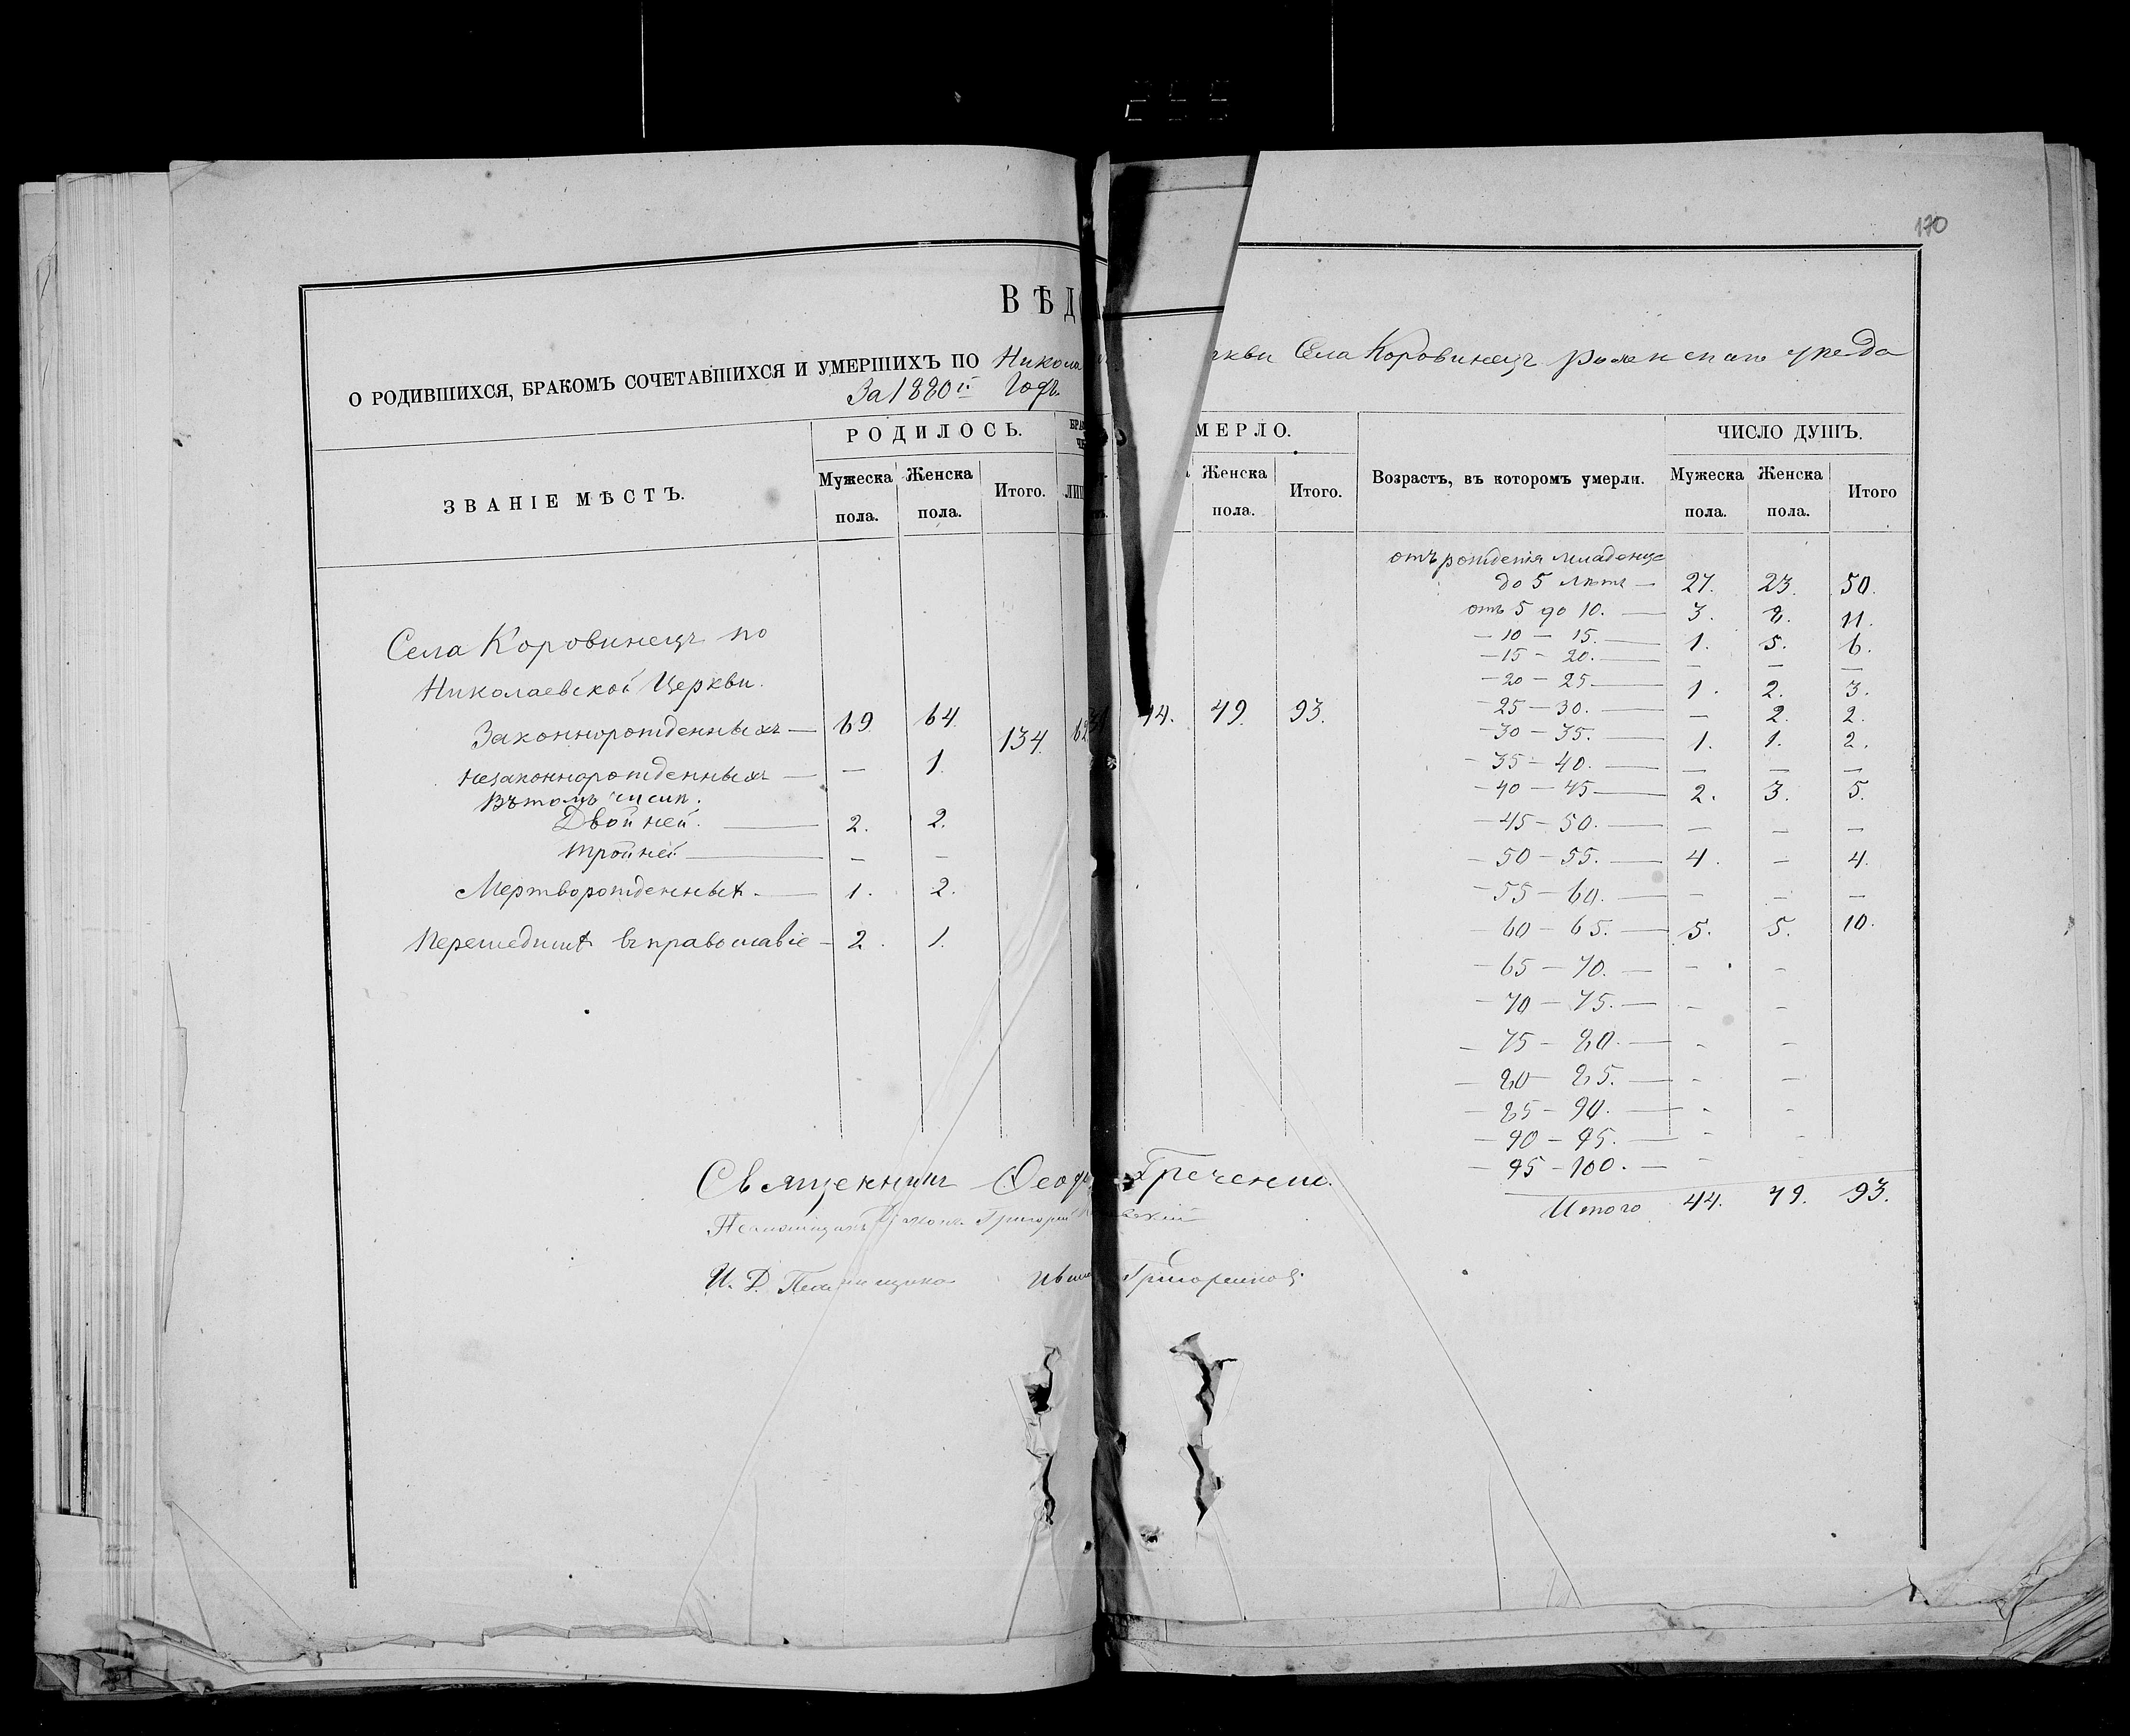 170
ВѢДО
О РОДИВШИХСЯ, БРАКОМЪ СОЧЕТАВШИХСЯ И УМЕРШИХЪ ПО Никола ркви Села Коровинецъ Роменскаго уѣзда
За 1880й Годъ.
ЗВАНІЕ МѢСТЪ. РОДИЛОСЬ. МЕРЛО. Возрастъ, въ которомъ умерли. ЧИСЛО ДУШЪ.
Мужеска пола. Женска пола. Итого. Женска пола. Итого. Мужеска пола. Женска пола. Итого
отъ рожденія младенце
до 5 лѣтъ — 27. 23. 50.
отъ 5 до 10. — 3. 8. 11.
— 10 — 15. — 1. 5. 6.
— 15 — 20. — — — —
— 20 — 25 — 1. 2. 3.
— 25 — 30. — — 2. 2.
— 30 — 35. — 1. 1. 2.
— 35 — 40. — — — —
— 40 — 45 — 2. 3. 5.
— 45 — 50. — — — —
— 50 — 55. — 4. — 4.
— 55 — 60. — — — —
— 60 — 65. — 5. 5. 10.
— 65 — 70. — — —
— 70 — 75. — — —
— 75 — 80. — — —
— 80 — 85. — — —
— 85 — 90. — — —
— 90 — 95. — — —
— 95 — 100. — —
Итого 44. 49. 93.
Села Коровинецъ по
Николаевской Церкви.
Законнорожденныхъ — 69. 64. 134. 44. 49. 93.
незаконнорожденныхъ — — 1.
Въ томъ числѣ.
Двойней. — 2. 2.
тройней — — —
Мертворожденныхъ — 1. 2.
Перешедшихъ въ православіе — 2. 1.
Священникъ Ѳеод Гречен
Григорій
И. Д. Псаломщика Иван Григоренков